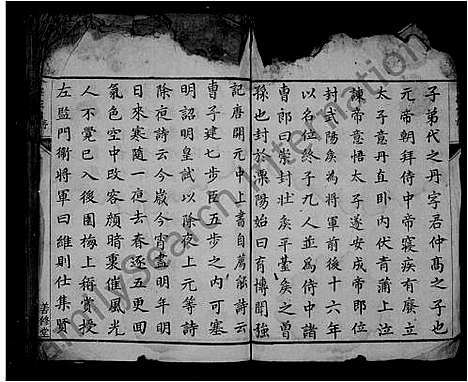 子第代之丹字君仲高之子也
元帝朝拜侍中帝寢疾有廢立
太子意丹直卧内伏青蒲上泣
諫帝意悟太子遂安成帝即位
封武陽矦為將軍前後十六年
以名位終子九人並為侍中諸
曹郎曰崇封壮矦平䑓矦之曾
孫也封於溧陽始曰育博聞強
記唐開元中上書自薦䏻詩云
曹子建七步臣五步之内可塞
明詔明皇試以除夜上元等詩
除夜詩云今歲今宵盡明年明
日來寒隨一夜去春逐五更囬
氣色空中改容顔暗裏催風光
人不覺已入後園梅上稱賞授
左監門衛將軍曰維則仕集賢
善條堂